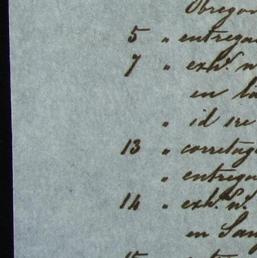 Obregon
5 " entrega
7 " exh.º n
en la
" id re
13 " corretag
" entrega
14 " exh.º n.
en San
15